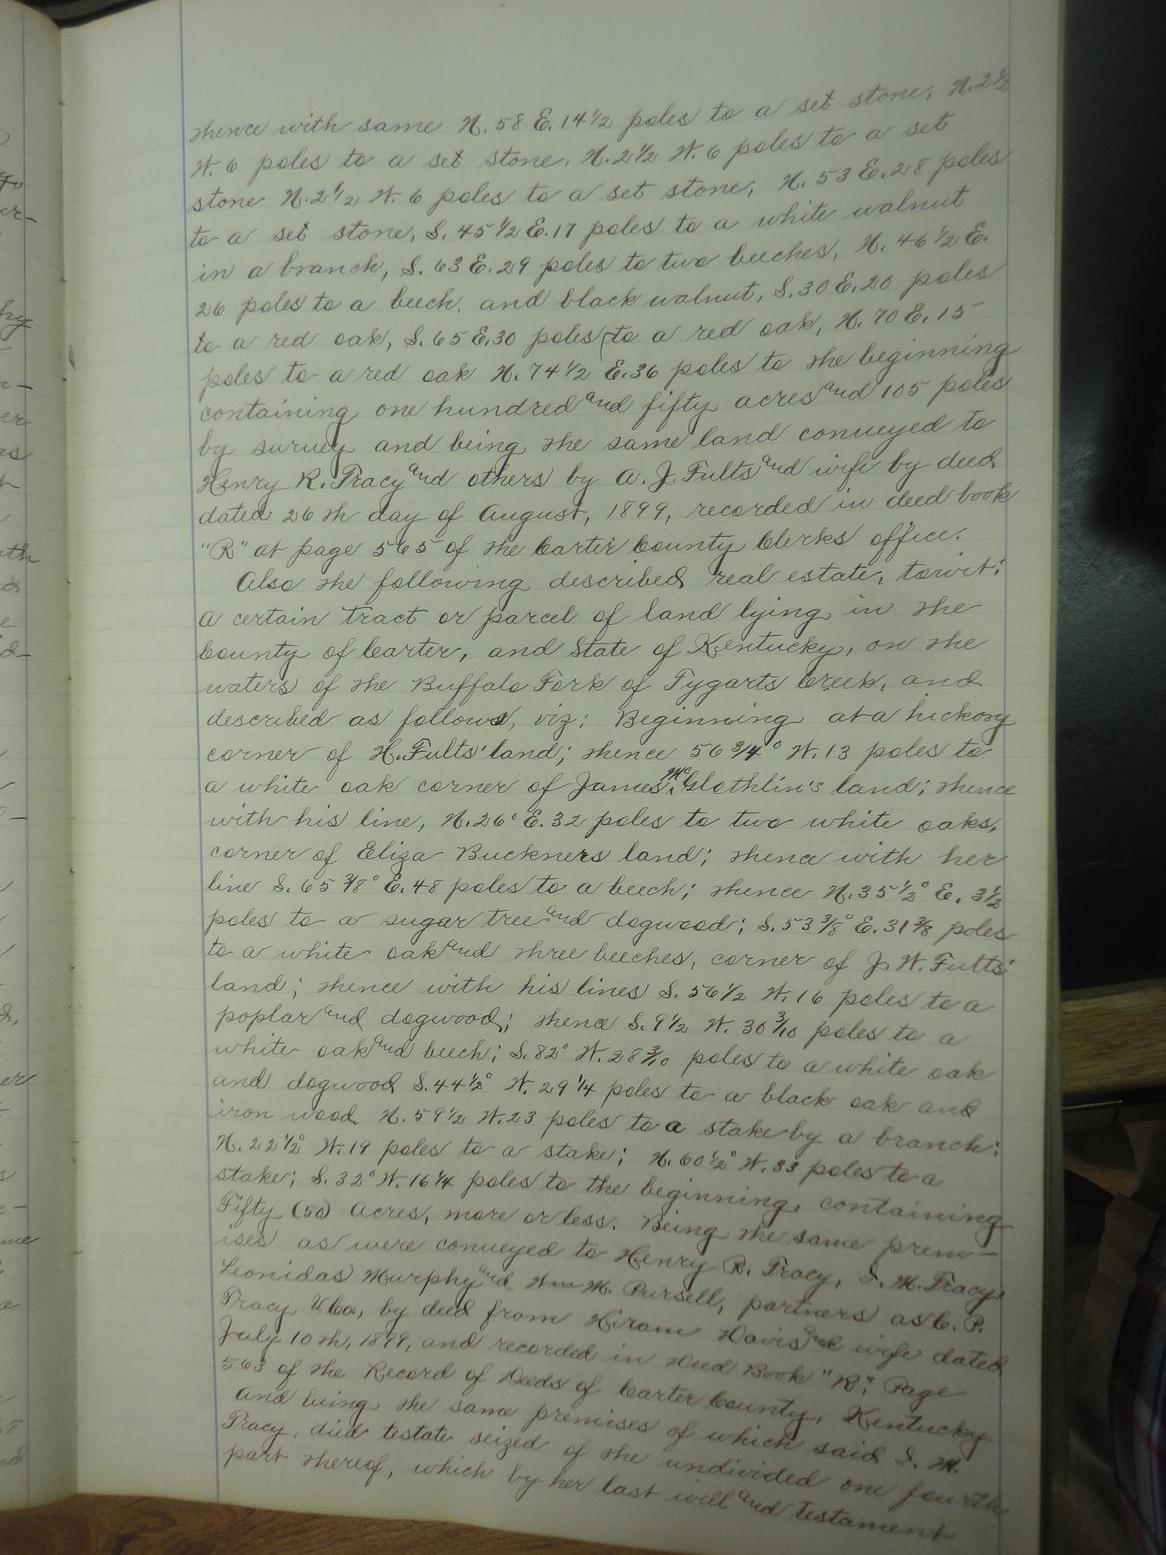 thence with same N. 58 E. 14 1/2 poles to a set stone, N. 2 1/2
W. 6 poles to a set stone, N. 2 1/2 W. 6 poles to a set
stone N. 2 1/2 W. 6 poles to a set stone, N. 53 E. 28 poles
to a set stone, S. 45 1/2 E. 17 poles to a white walnut
in a branch, S. 63 E. 29 poles to two beeches, N. 46 1/2 E.
26 poles to a beech, and black walnut, S. 30 E. 20 poles
to a red oak, S. 65 E. 30 poles to a red oak, N. 70 E. 15
poles to a red oak N. 74 1/2 E. 36 poles to the beginning
containing one hundred and fifty acres and 105 poles
by survey and being the same land conveyed to
Henry R. Tracy and others by A. J. Fults and wife by deed
dated 26th day of August, 1899, recorded in deed book
"R" at page 565 of the Carter County Clerks office.
Also the following described real estate, towit:
a certain tract or parcel of land lying in the
County of Carter, and State of Kentucky, on the
waters of the Buffalo Fork of Tygarts Creek, and
described as follows, viz: Beginning at a hickory
corner of H. Fults' land; thence 56 3/4° W. 13 poles to
a white oak corner of James McGlothlin's land; thence
with his line, N. 26° E. 32 poles to two white oaks,
corner of Eliza Buckners land; thence with her
line S. 65 3/8° E. 48 poles to a beech; thence N. 35 1/2° E. 3 1/2
poles to a sugar tree and dogwood; S. 53 3/8° E. 31 3/8 poles
to a white oak and three beeches, corner of J. W. Fults'
land; thence with his lines S. 56 1/2 W. 16 poles to a
poplar and dogwood; thence S. 9 1/2 W. 30 3/10 poles to a
white oak and beech; S. 82° W. 28 3/10 poles to a white oak
and dogwood S. 44 1/2° W. 29 1/4 poles to a black oak and
iron wood N. 59 1/2 W. 23 poles to a stake by a branch;
N. 22 1/2° W. 19 poles to a stake; N. 60 1/2° W. 33 poles to a
stake; S. 32° W. 16 1/4 poles to the beginning, containing
Fifty (50) Acres, more or less. Being the same prem-
ises as were conveyed to Henry R. Tracy, S. M. Tracy,
Leonidas Murphy and Wm M. Pursell, partners as C. P.
Tracy & Co, by deed from Hiram Davis and wife dated
July 10th, 1899, and recorded in Deed Book "R", Page
563 of the Record of Deeds of Carter County, Kentucky
And being the same premises of which said S. M.
Tracy, died testate seized of the undivided one fourth
part thereof, which by her last will and testament